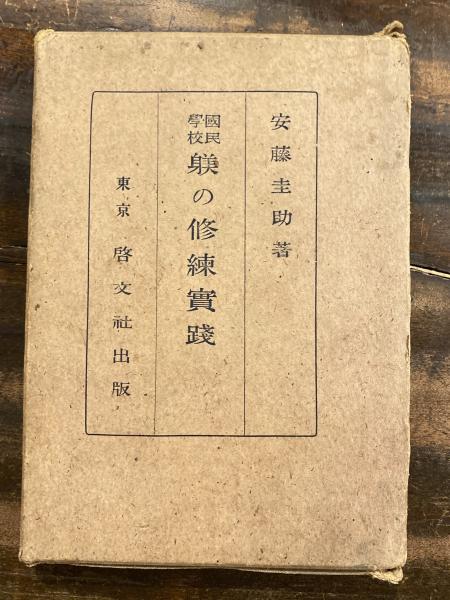 安藤圭助著
國民學校 躾の修練實踐
東京 啓文社出版